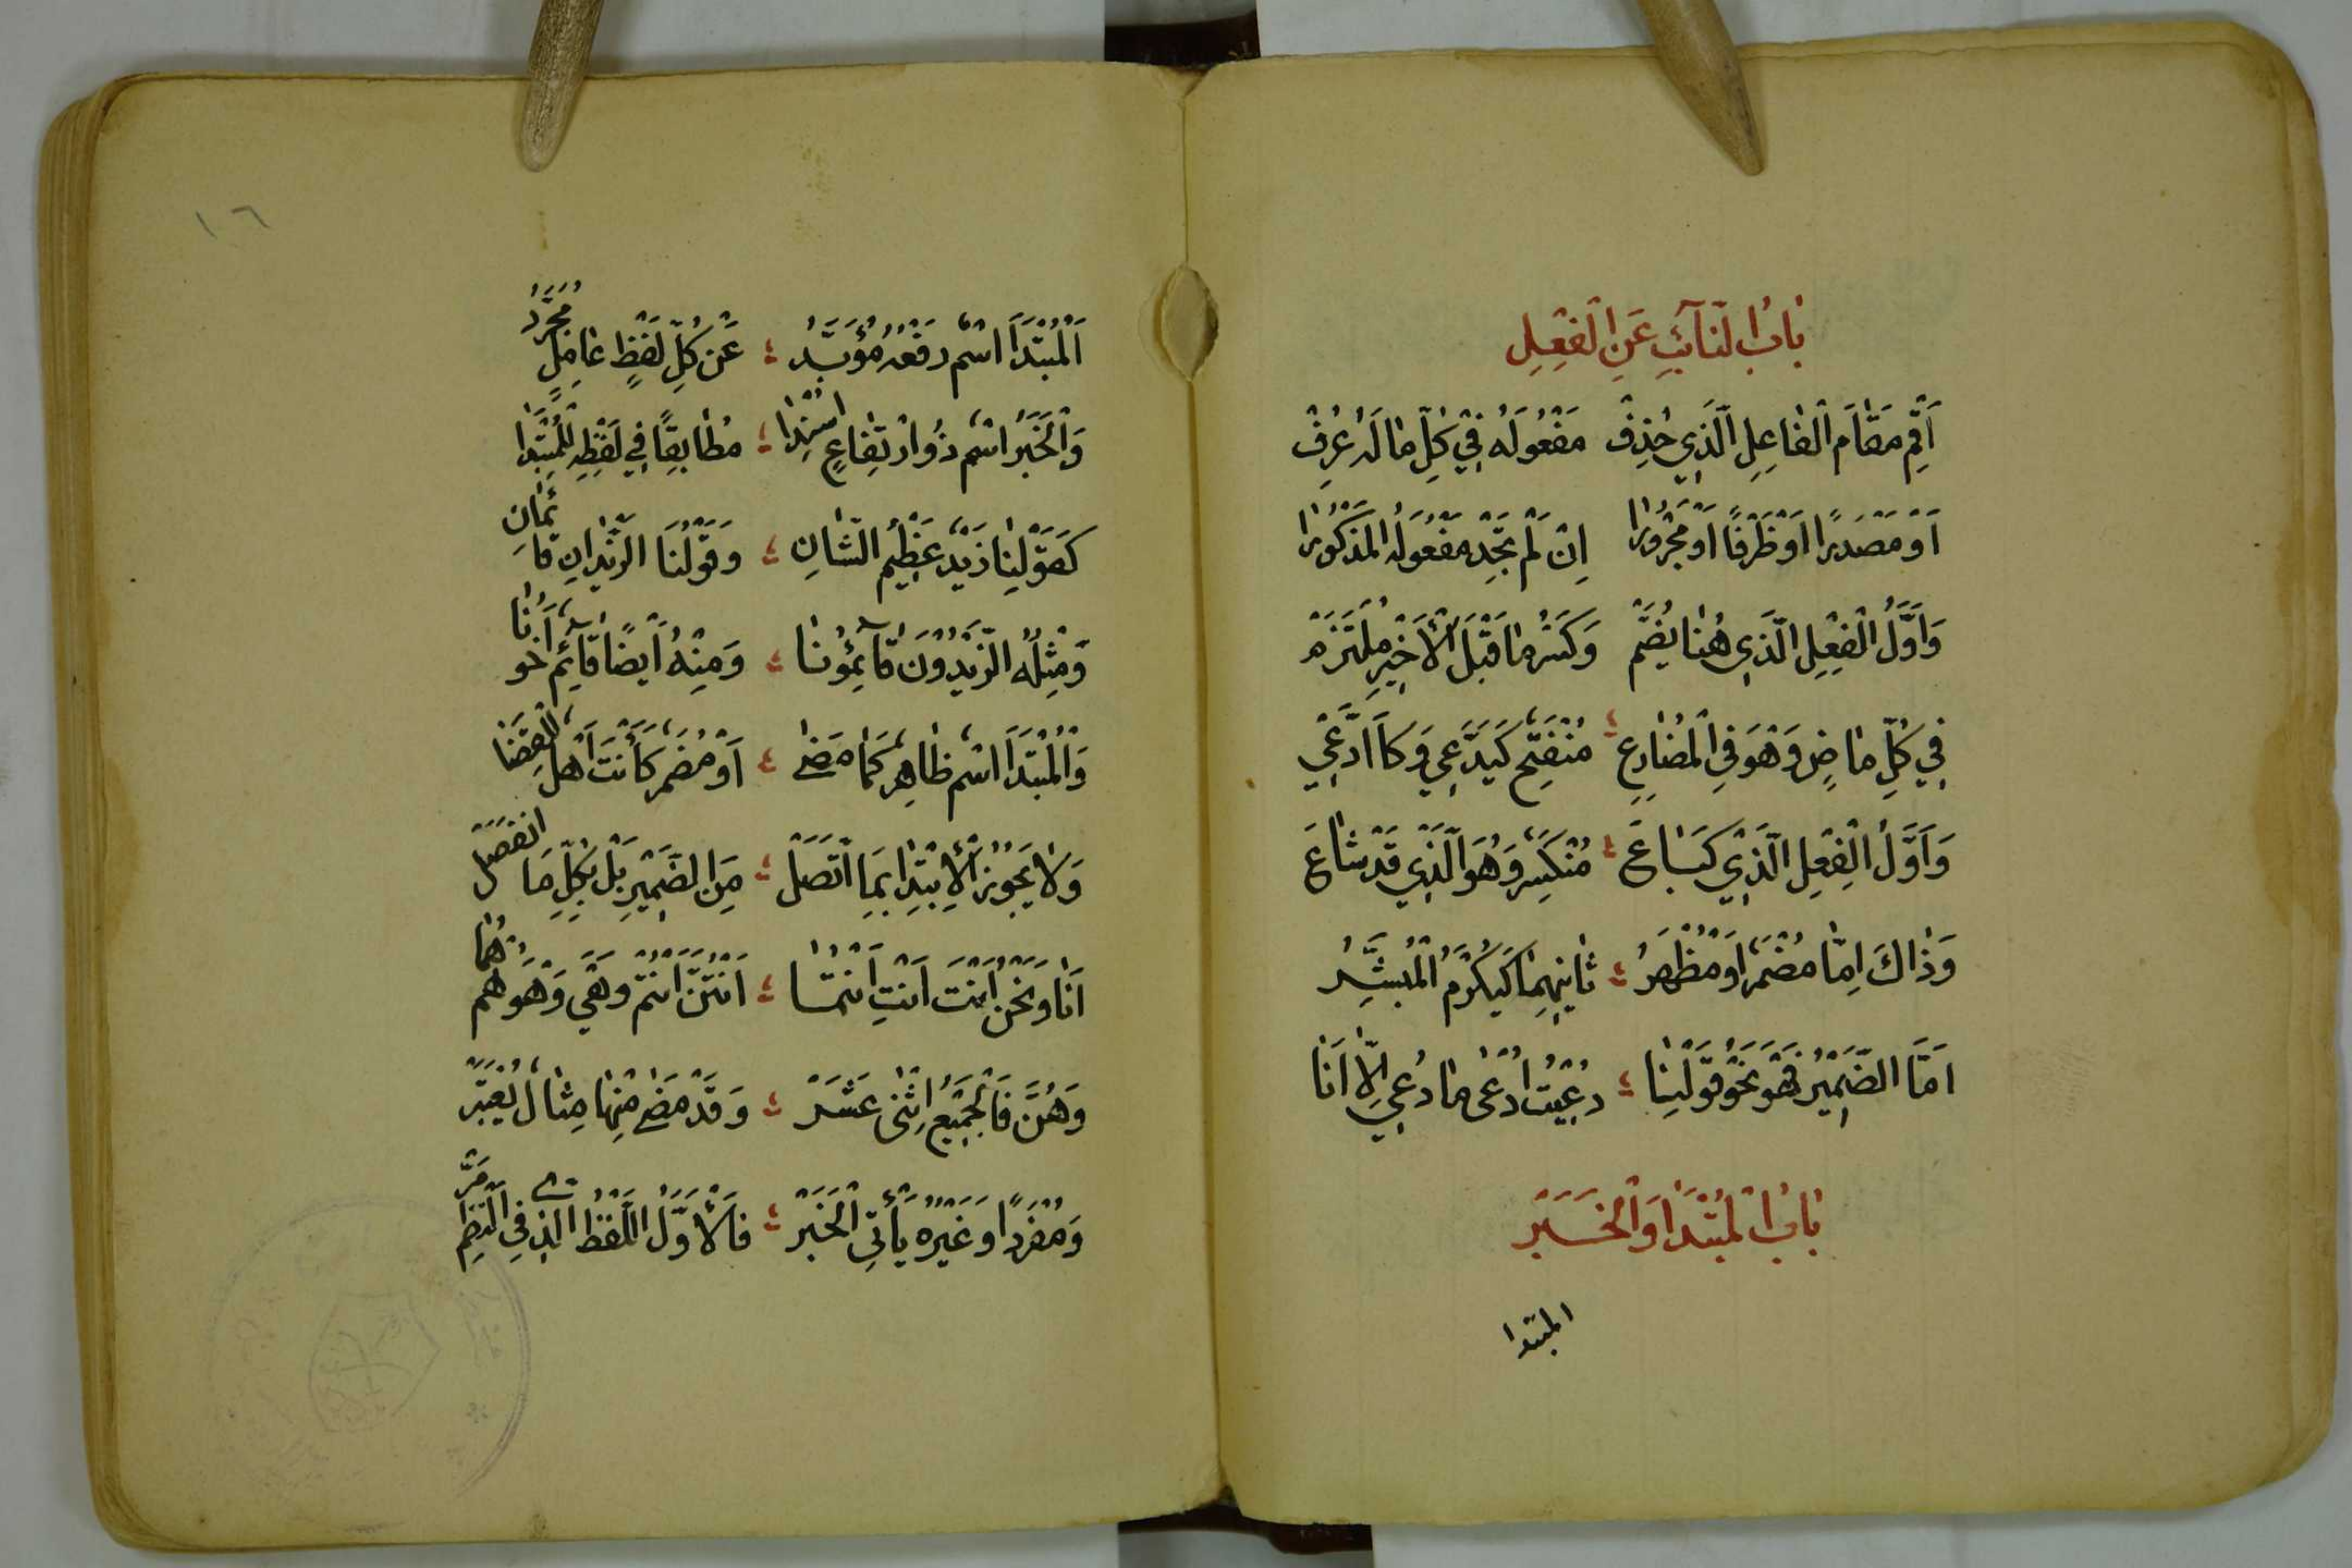 بَابُ النَّآئِبِ عَنِ الْفِعْلِ
اَقِمْ مَقَامَ الْفَاعِلِ الَّذِي حُذِفْ مَفْعُولَهُ فِي كُلِّ مَا لَهُ عُرِفْ
اَوْ مَصْدَرًا اَوْ ظَرْفًا اَوْ مَجْرُورَا اِنْ لَمْ تَجِدْ مَفْعُولَهُ الْمَذْكُورَا
وَاَوَّلُ الْفِعْلِ الَّذِي هُنَا يُضَمّ وَكَسْرُ مَا قَبْلَ الْأَخِيرِ مُلْتَزَمْ
فِي كُلِّ مَاضٍ وَهْوَ فِي الْمُضَارِعِ مُنْفَتِحٌ كَيُدَّعَي وَكَاَادُّعِي
وَاَوَّلُ الْفِعْلِ الَّذِي كَبَاعَ مُنْكَسِرٌ وَهُوَ الَّذِي قَدْ شَاعَ
وَذَاكَ اِمَّا مُضْمَرٌ اَوْ مُظْهَرُ ثَانِيهِمَا كَيُكْرَمُ الْمُبَشِّرُ
اَمَّا الضَّمِيْرُ فَهْوَ نَحْوُ قَوْلِنَا دُعِيْتُ اُدْعَى مَا دُعِي اِلَّا اَنَا
بَابُ الْمُبْتَدَا وَالْخَبَر
المبتدا
١٦
اَلْمُبْتَدَأْ اسْمٌ رَفْعُهُ مُؤَبَّدُ عَنْ كُلِّ لَفْظٍ عَامِلٍ مُجَرَّدُ
وَالْخَبَرُ اسْمٌ ذُو ارْتِفَاعٍ اُسْنِدَا مُطَابِقًا فِي لَفْظِهِ لِلْمُبْتَدَا
كَقَوْلِنَا زَيْدٌ عَظِيْمُ الشَّانِ وَقَوْلُنَا الزَّيْدَانِ قَائِمَانِ
وَمِثْلُهُ الزَّيْدُوْنَ قَآئِمُوْنَا وَمِنْهُ اَيْضًا قَآئِمٌ اَخُوْنَا
وَالْمُبْتَدَا اسْمٌ ظَاهِرٌ كَمَا مَضَى اَوْ مُضْمَرٌ كَاَنْتَ اَهْلٌ لِلْقَضَا
وَلَا يَجُوْزُ الْاِبْتِدَا بِمَا اتَّصَلْ مِنَ الضَّمِيْرِ بَلْ بِكُلِّ مَا انْفَصَلْ
اَنَا وَنَحْنُ اَنْتَ اَنْتِ اَنْتُمَا اَنْتُنَّ اَنْتُمْ وَهْيَ وَهْوَ هُمْ هُمَا
وَهُنَّ فَالْجَمِيْعُ اِثْنَى عَشَرَ وَقَدْ مَضَى مِنْهَا مِثَالٌ يُعْتَبَرْ
وَمُفْرَدًا وَغَيْرُهُ يَأْتِي الْخَبَرْ فَالْاَوَّلُ اللَّفْظُ الَّذِي فِي النَّظْمِ مَرّ